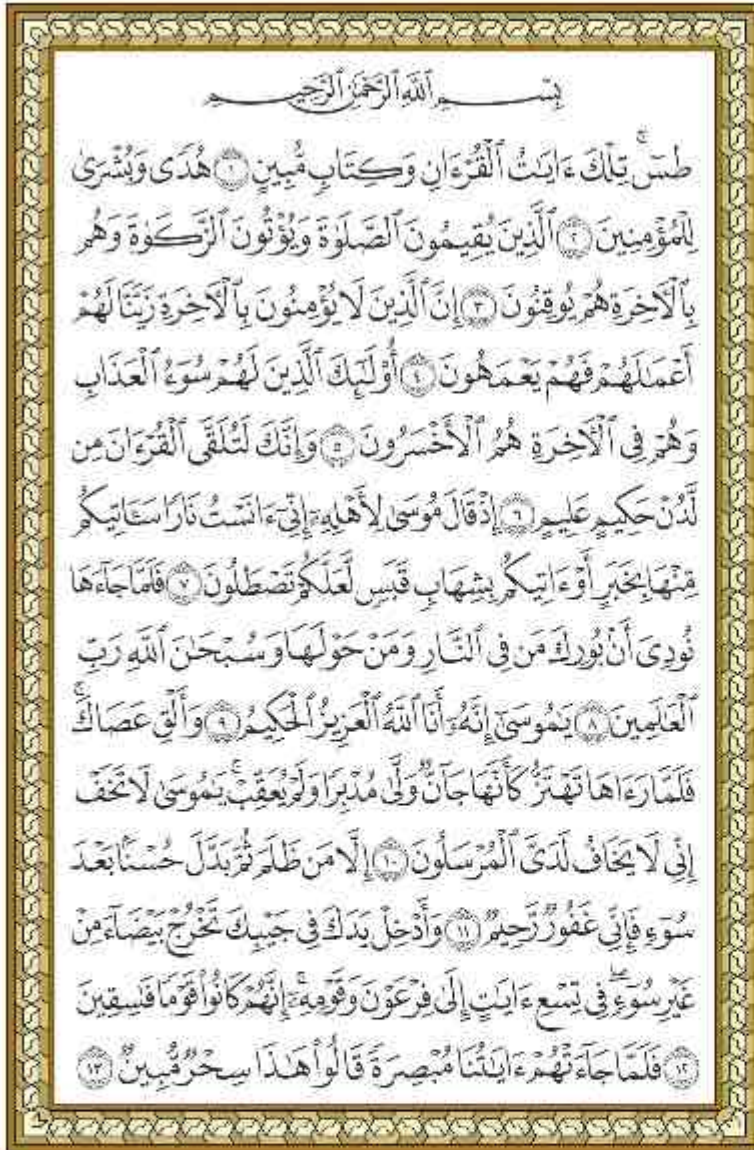 بِسْمِ ٱللَّهِ ٱلرَّحْمَٰنِ ٱلرَّحِيمِ
طسٓ ۚ تِلْكَ ءَايَٰتُ ٱلْقُرْءَانِ وَكِتَابٍ مُّبِينٍ ١ هُدًى وَبُشْرَىٰ
لِلْمُؤْمِنِينَ ٢ ٱلَّذِينَ يُقِيمُونَ ٱلصَّلَوٰةَ وَيُؤْتُونَ ٱلزَّكَوٰةَ وَهُم
بِٱلْءَاخِرَةِ هُمْ يُوقِنُونَ ٣ إِنَّ ٱلَّذِينَ لَا يُؤْمِنُونَ بِٱلْءَاخِرَةِ زَيَّنَّا لَهُمْ
أَعْمَٰلَهُمْ فَهُمْ يَعْمَهُونَ ٤ أُو۟لَٰٓئِكَ ٱلَّذِينَ لَهُمْ سُوٓءُ ٱلْعَذَابِ
وَهُمْ فِى ٱلْءَاخِرَةِ هُمُ ٱلْأَخْسَرُونَ ٥ وَإِنَّكَ لَتُلَقَّى ٱلْقُرْءَانَ مِن
لَّدُنْ حَكِيمٍ عَلِيمٍ ٦ إِذْ قَالَ مُوسَىٰ لِأَهْلِهِۦٓ إِنِّىٓ ءَانَسْتُ نَارًا سَـَٔاتِيكُم
مِّنْهَا بِخَبَرٍ أَوْ ءَاتِيكُم بِشِهَابٍ قَبَسٍ لَّعَلَّكُمْ تَصْطَلُونَ ٧ فَلَمَّا جَآءَهَا
نُودِىَ أَنۢ بُورِكَ مَن فِى ٱلنَّارِ وَمَنْ حَوْلَهَا وَسُبْحَٰنَ ٱللَّهِ رَبِّ
ٱلْعَٰلَمِينَ ٨ يَٰمُوسَىٰٓ إِنَّهُۥٓ أَنَا ٱللَّهُ ٱلْعَزِيزُ ٱلْحَكِيمُ ٩ وَأَلْقِ عَصَاكَ ۚ
فَلَمَّا رَءَاهَا تَهْتَزُّ كَأَنَّهَا جَآنٌّ وَلَّىٰ مُدْبِرًا وَلَمْ يُعَقِّبْ ۚ يَٰمُوسَىٰ لَا تَخَفْ
إِنِّى لَا يَخَافُ لَدَىَّ ٱلْمُرْسَلُونَ ١٠ إِلَّا مَن ظَلَمَ ثُمَّ بَدَّلَ حُسْنًۢا بَعْدَ
سُوٓءٍ فَإِنِّى غَفُورٌ رَّحِيمٌ ١١ وَأَدْخِلْ يَدَكَ فِى جَيْبِكَ تَخْرُجْ بَيْضَآءَ مِنْ
غَيْرِ سُوٓءٍ ۖ فِى تِسْعِ ءَايَٰتٍ إِلَىٰ فِرْعَوْنَ وَقَوْمِهِۦٓ ۚ إِنَّهُمْ كَانُوا۟ قَوْمًا فَٰسِقِينَ
١٢ فَلَمَّا جَآءَتْهُمْ ءَايَٰتُنَا مُبْصِرَةً قَالُوا۟ هَٰذَا سِحْرٌ مُّبِينٌ ١٣